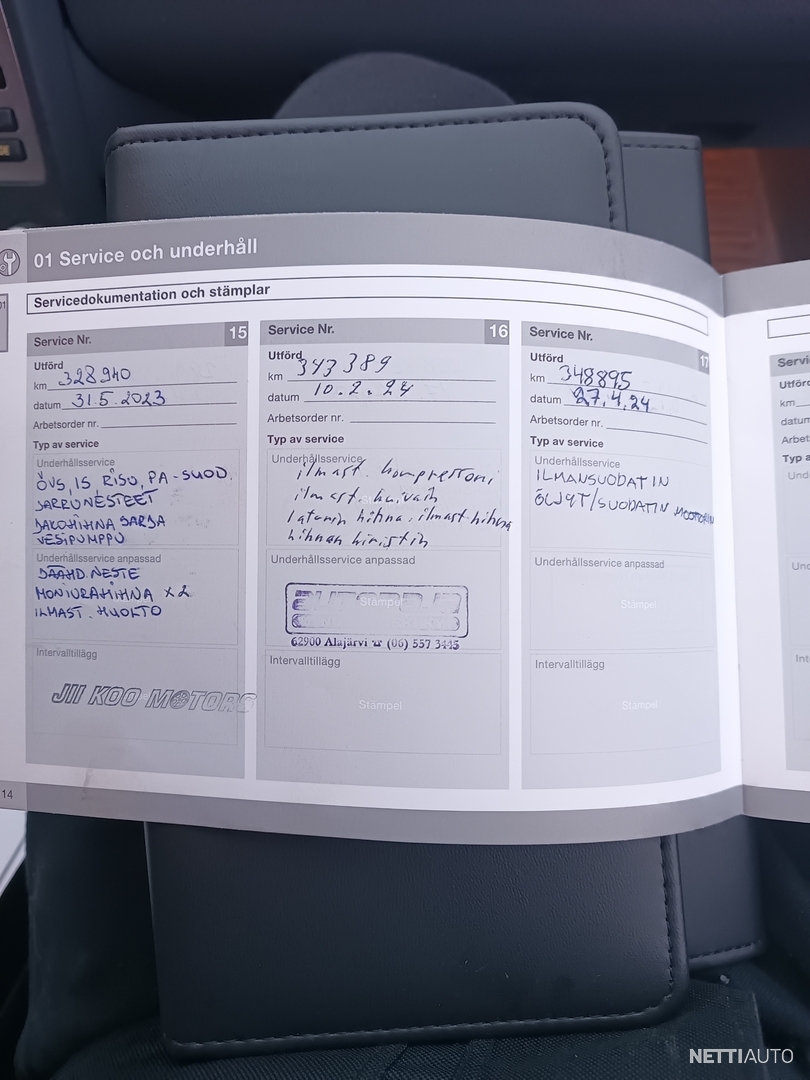 01 Service och underhåll
01
Servicedokumentation och stämplar
Service Nr. 15
Utförd
km 328940
datum 31.5.2023
Arbetsorder nr.
Typ av service
Underhållsservice
ÖVS, IS, RISU, PA-SUOD.
JARRUNESTEET
JAKOHIHNA SARJA
VESIPUMPPU
Underhållsservice anpassad
JÄÄHD.NESTE
MONIURAHIHNA x2
ILMAST. HUOLTO
Intervalltillägg
JII KOO MOTORS
Service Nr. 16
Utförd
km 343389
datum 10.2.24
Arbetsorder nr.
Typ av service
Underhållsservice
ilmast. kompressori
ilmast. kuivain
laturin hihna, ilmast.hihna
hihnan kiristin
Underhållsservice anpassad
Stämpel
62900 Alajärvi ☎ (06) 557 3445
Intervalltillägg
Stämpel
Service Nr. 17
Utförd
km 348895
datum 27.4.24
Arbetsorder nr.
Typ av service
Underhållsservice
ILMANSUODATIN
ÖLJYT/SUODATIN MOOTTORIN
Underhållsservice anpassad
Stämpel
Intervalltillägg
Stämpel
Servi
Utförd
km
datum
Arbetso
Typ a
Und
Un
Int
14
NETTIAUTO